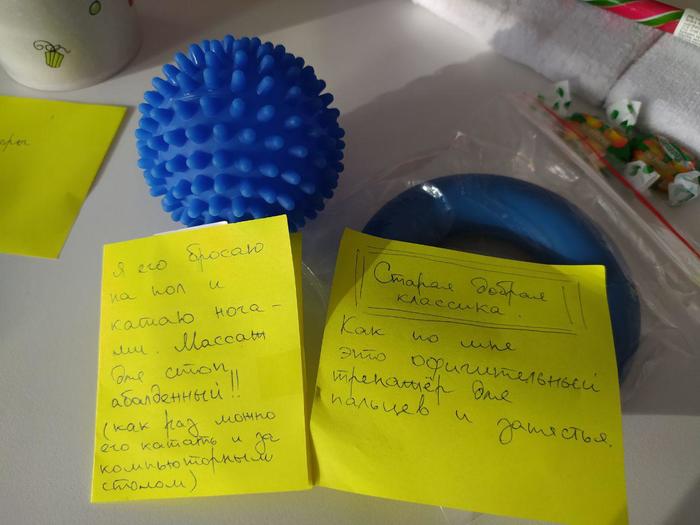 я его бросаю
на пол и
катаю нога-
ми. Массаж
для стоп
абалденный!!
(как раз можно
его катать и за
компьюторным
столом)
Старая добрая
классика.
Как по мне
это офигительный
тренажёр для
пальцев и запястья.